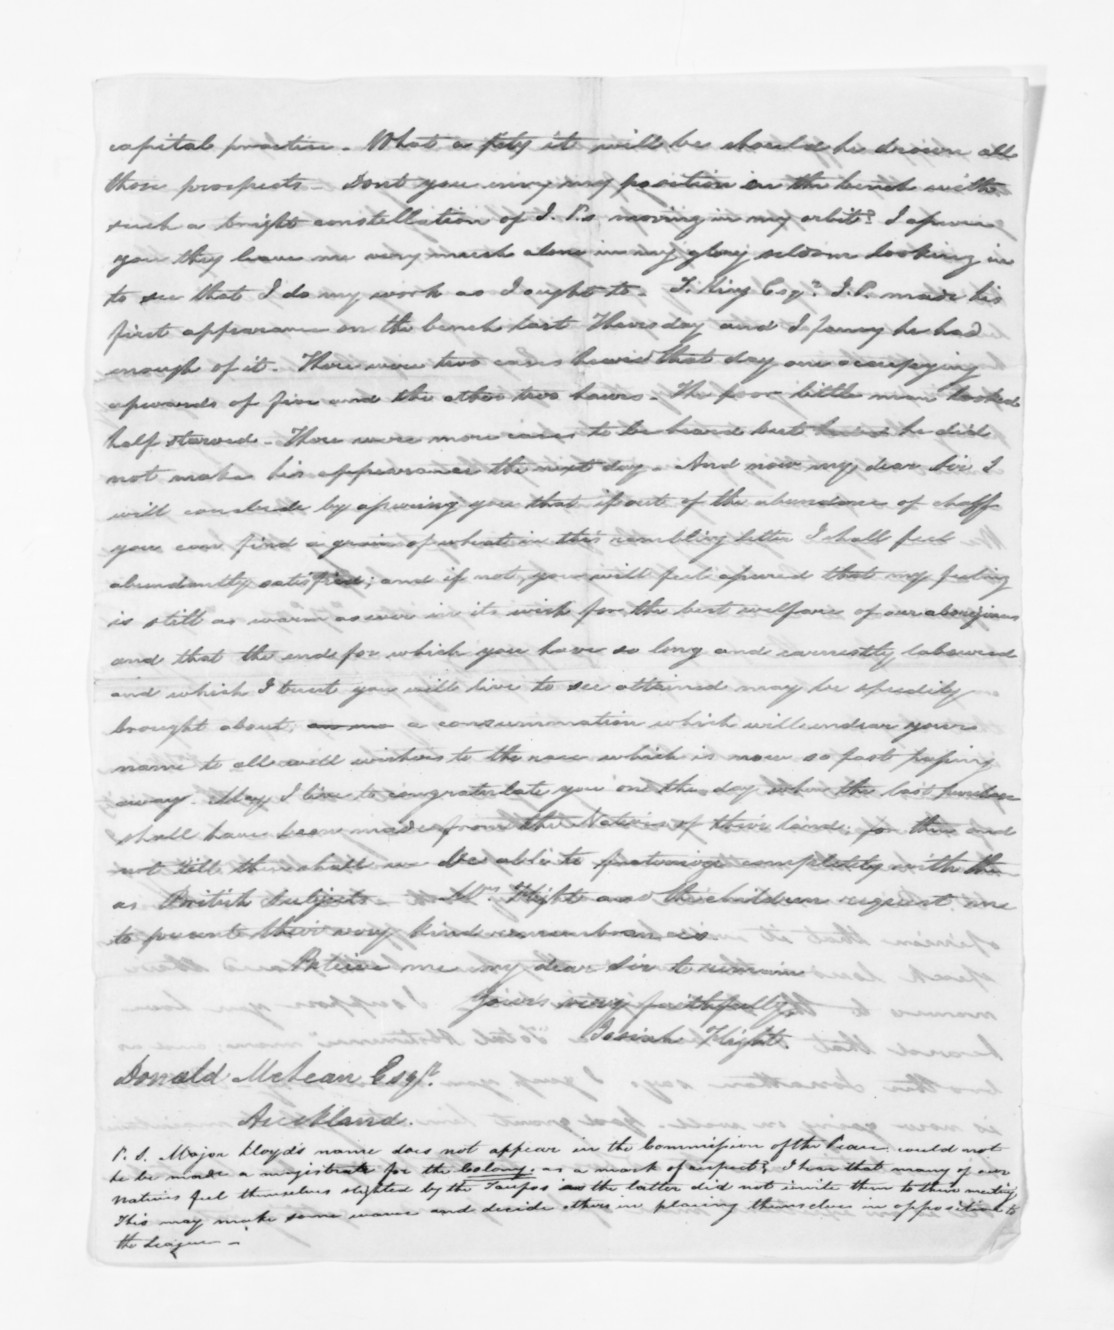 capital practice. What a pity it will be should he drown all
those prospects. Dont you envy my position on the bench with
such a bright constellation of J. P.s moving in my orbit? I assure
you they leave me very much alone in my glory seldom looking in
to see that I do my work as I ought to. T. King Esqr. J.P. made his
first appearance on the bench last Thursday and I fancy he had
enough of it. There were two cases heard that day one occupying
upwards of five and the other two hours. The poor little man looked
half starved. There were more cases to be heard but he did
not make his appearance the next day. And now my dear Sir I
will conclude by assuring you that if out of the abundance of chaff
you can find a grain of wheat in this rambling letter I shall feel
abundantly satisfied; and if not, you will feel assured that my feeling
is still as warm as ever in its wish for the best welfare of our aborigines
and that the ends for which you have so long and earnestly laboured
and which I trust you will live to see attained may be speedily
brought about, a consummation which will endear your
name to all well wishers to the race which is now so fast passing
away. May I live to congratulate you on the day when the last purchase
shall have been made from the Natives of their land; for then and
not till then shall we be able to fraternize completely with them
as British subjects. Mrs. Flight and the children request me
to present their very kind remembrances
Believe me my dear Sir to remain
Yours very faithfully,
Josiah Flight.
Donald McLean Esqr.
Auckland.
P.S. Major Lloyd's name does not appear in the Commission of the Peace. could not
he be made a magistrate for the Colony, as a mark of respect? I hear that many of our
Natives feel themselves slighted by the Taupos as the latter did not invite them to their meeting
This may make some waver and decide others in placing themselves in opposition to
the League.